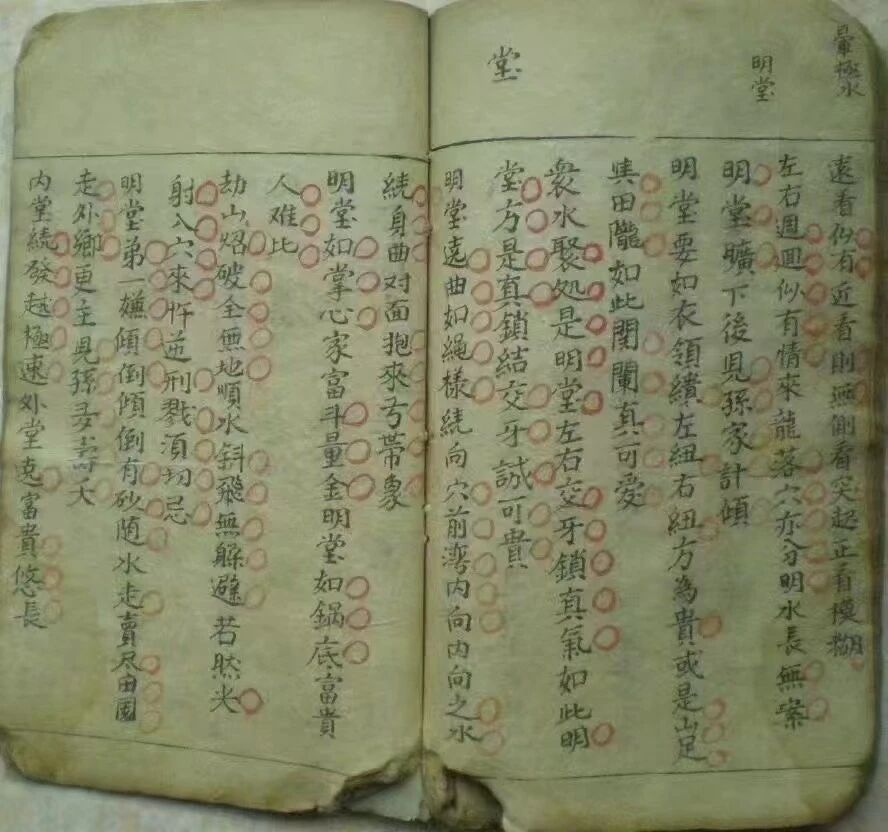 暈極水
明堂
堂
遠看似有近看則無側看突起正看模糊
左右週圍似有情來龍落穴亦分明水長無案
明堂曠下後見孫家計傾
明堂要如衣領繢左紐右紐方為貴或是山足
與田隴如此閗闌真可爱
衆水聚処是明堂左右交牙鎖真氣如此明
堂方是真鎖結交牙誠可貴
明堂遶曲如繩樣繞向穴前湾内向内向之水
繞身曲对面抱來弓帶象
明堂如掌心家富斗量金明堂如鍋底富貴
人难比
劫山熖破全無地順水斜飛無躲避若然尖
射入穴來忤逆刑戮湏切忌
明堂苐一嫌傾倒傾倒有砂随水走賣尽田園
走外鄉更主見孫多壽夭
内堂繞發越極速外堂遠富貴悠長